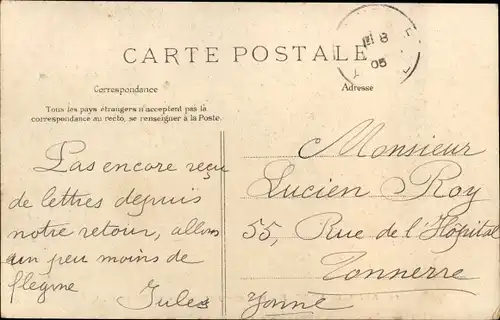 CARTE POSTALE
8
05
Correspondance
Adresse
Tous les pays étrangers n'acceptent pas là
correspondance au recto, se renseigner à la Poste.
Pas encore reçu
de lettres depuis
notre retour, allons
un peu moins de
flegme
Jules
Monsieur
Lucien Roy
55, Rue de l'Hôpital
Tonnerre
Yonne